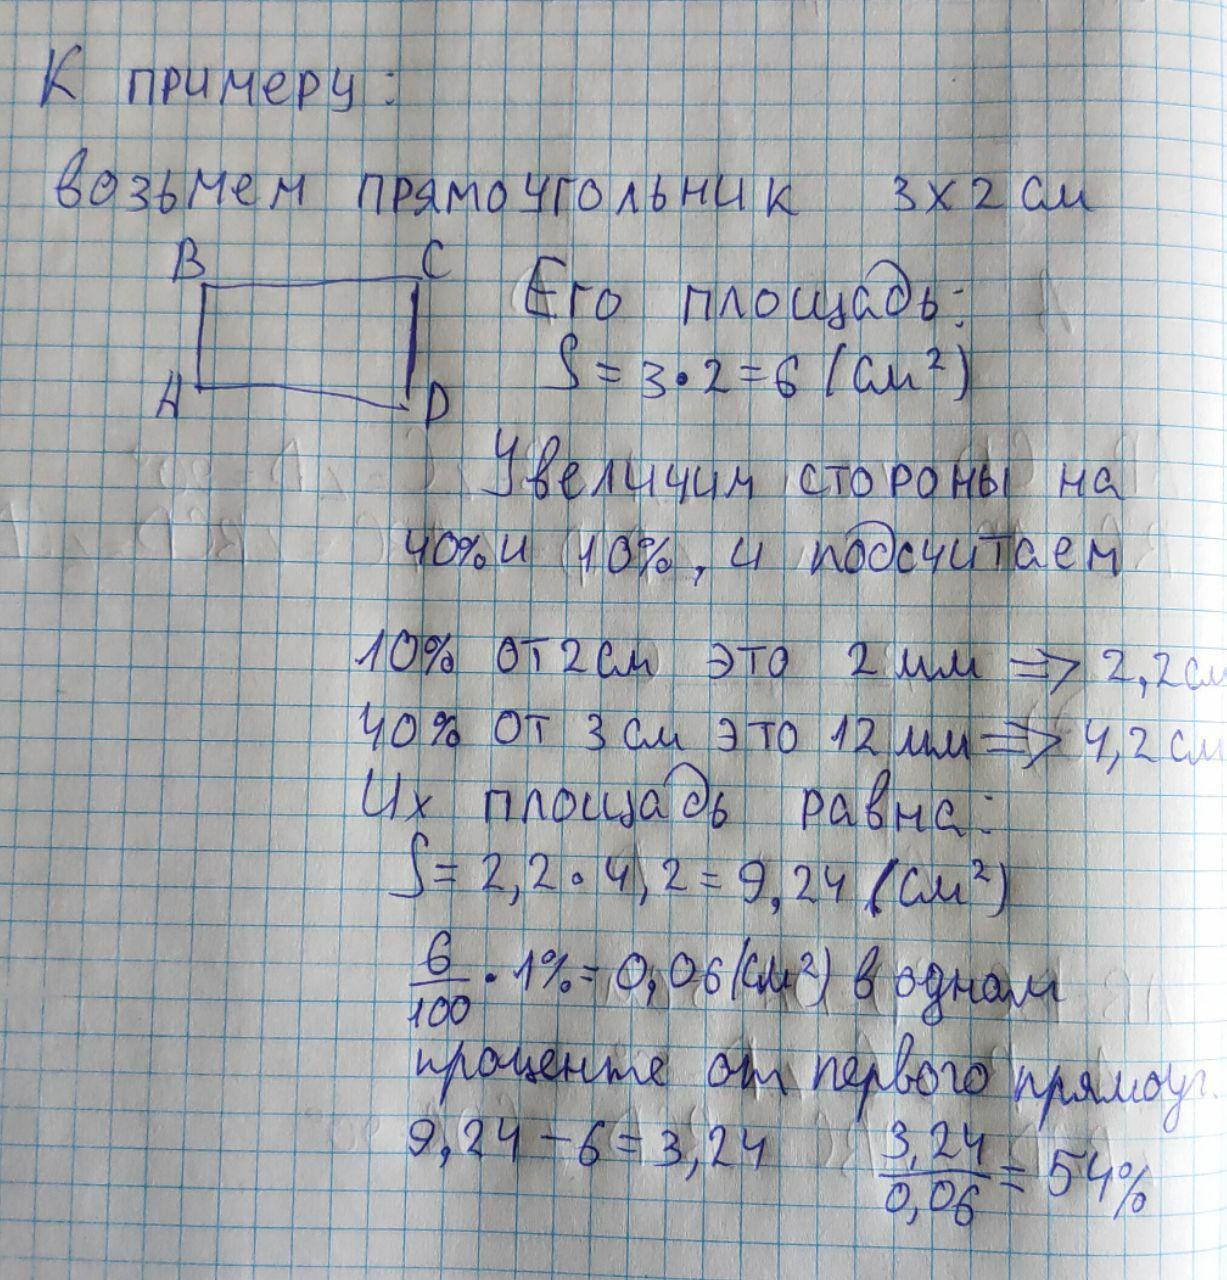 К примеру:
возьмем прямоугольник 3х2 см
B C
A D
Его площадь:
S = 3 • 2 = 6 (см²)
Увеличим стороны на
40% и 10%, и подсчитаем
10% от 2 см это 2 мм => 2,2 см
40% от 3 см это 12 мм => 4,2 см
Их площадь равна:
S = 2,2 • 4,2 = 9,24 (см²)
6/100 • 1% = 0,06 (см²) в одном
проценте от первого прямоуг.
9,24 - 6 = 3,24 3,24/0,06 = 54%